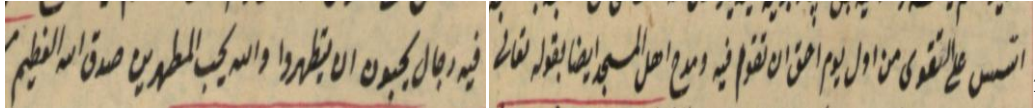 اسس على التقوى من اول يوم احق ان تقوم فيه ومدح اهل المسجد ايضا بقوله تعالى
فيه رجال يحبون ان يتطهروا والله يحب المطهرين صدق الله العظيم